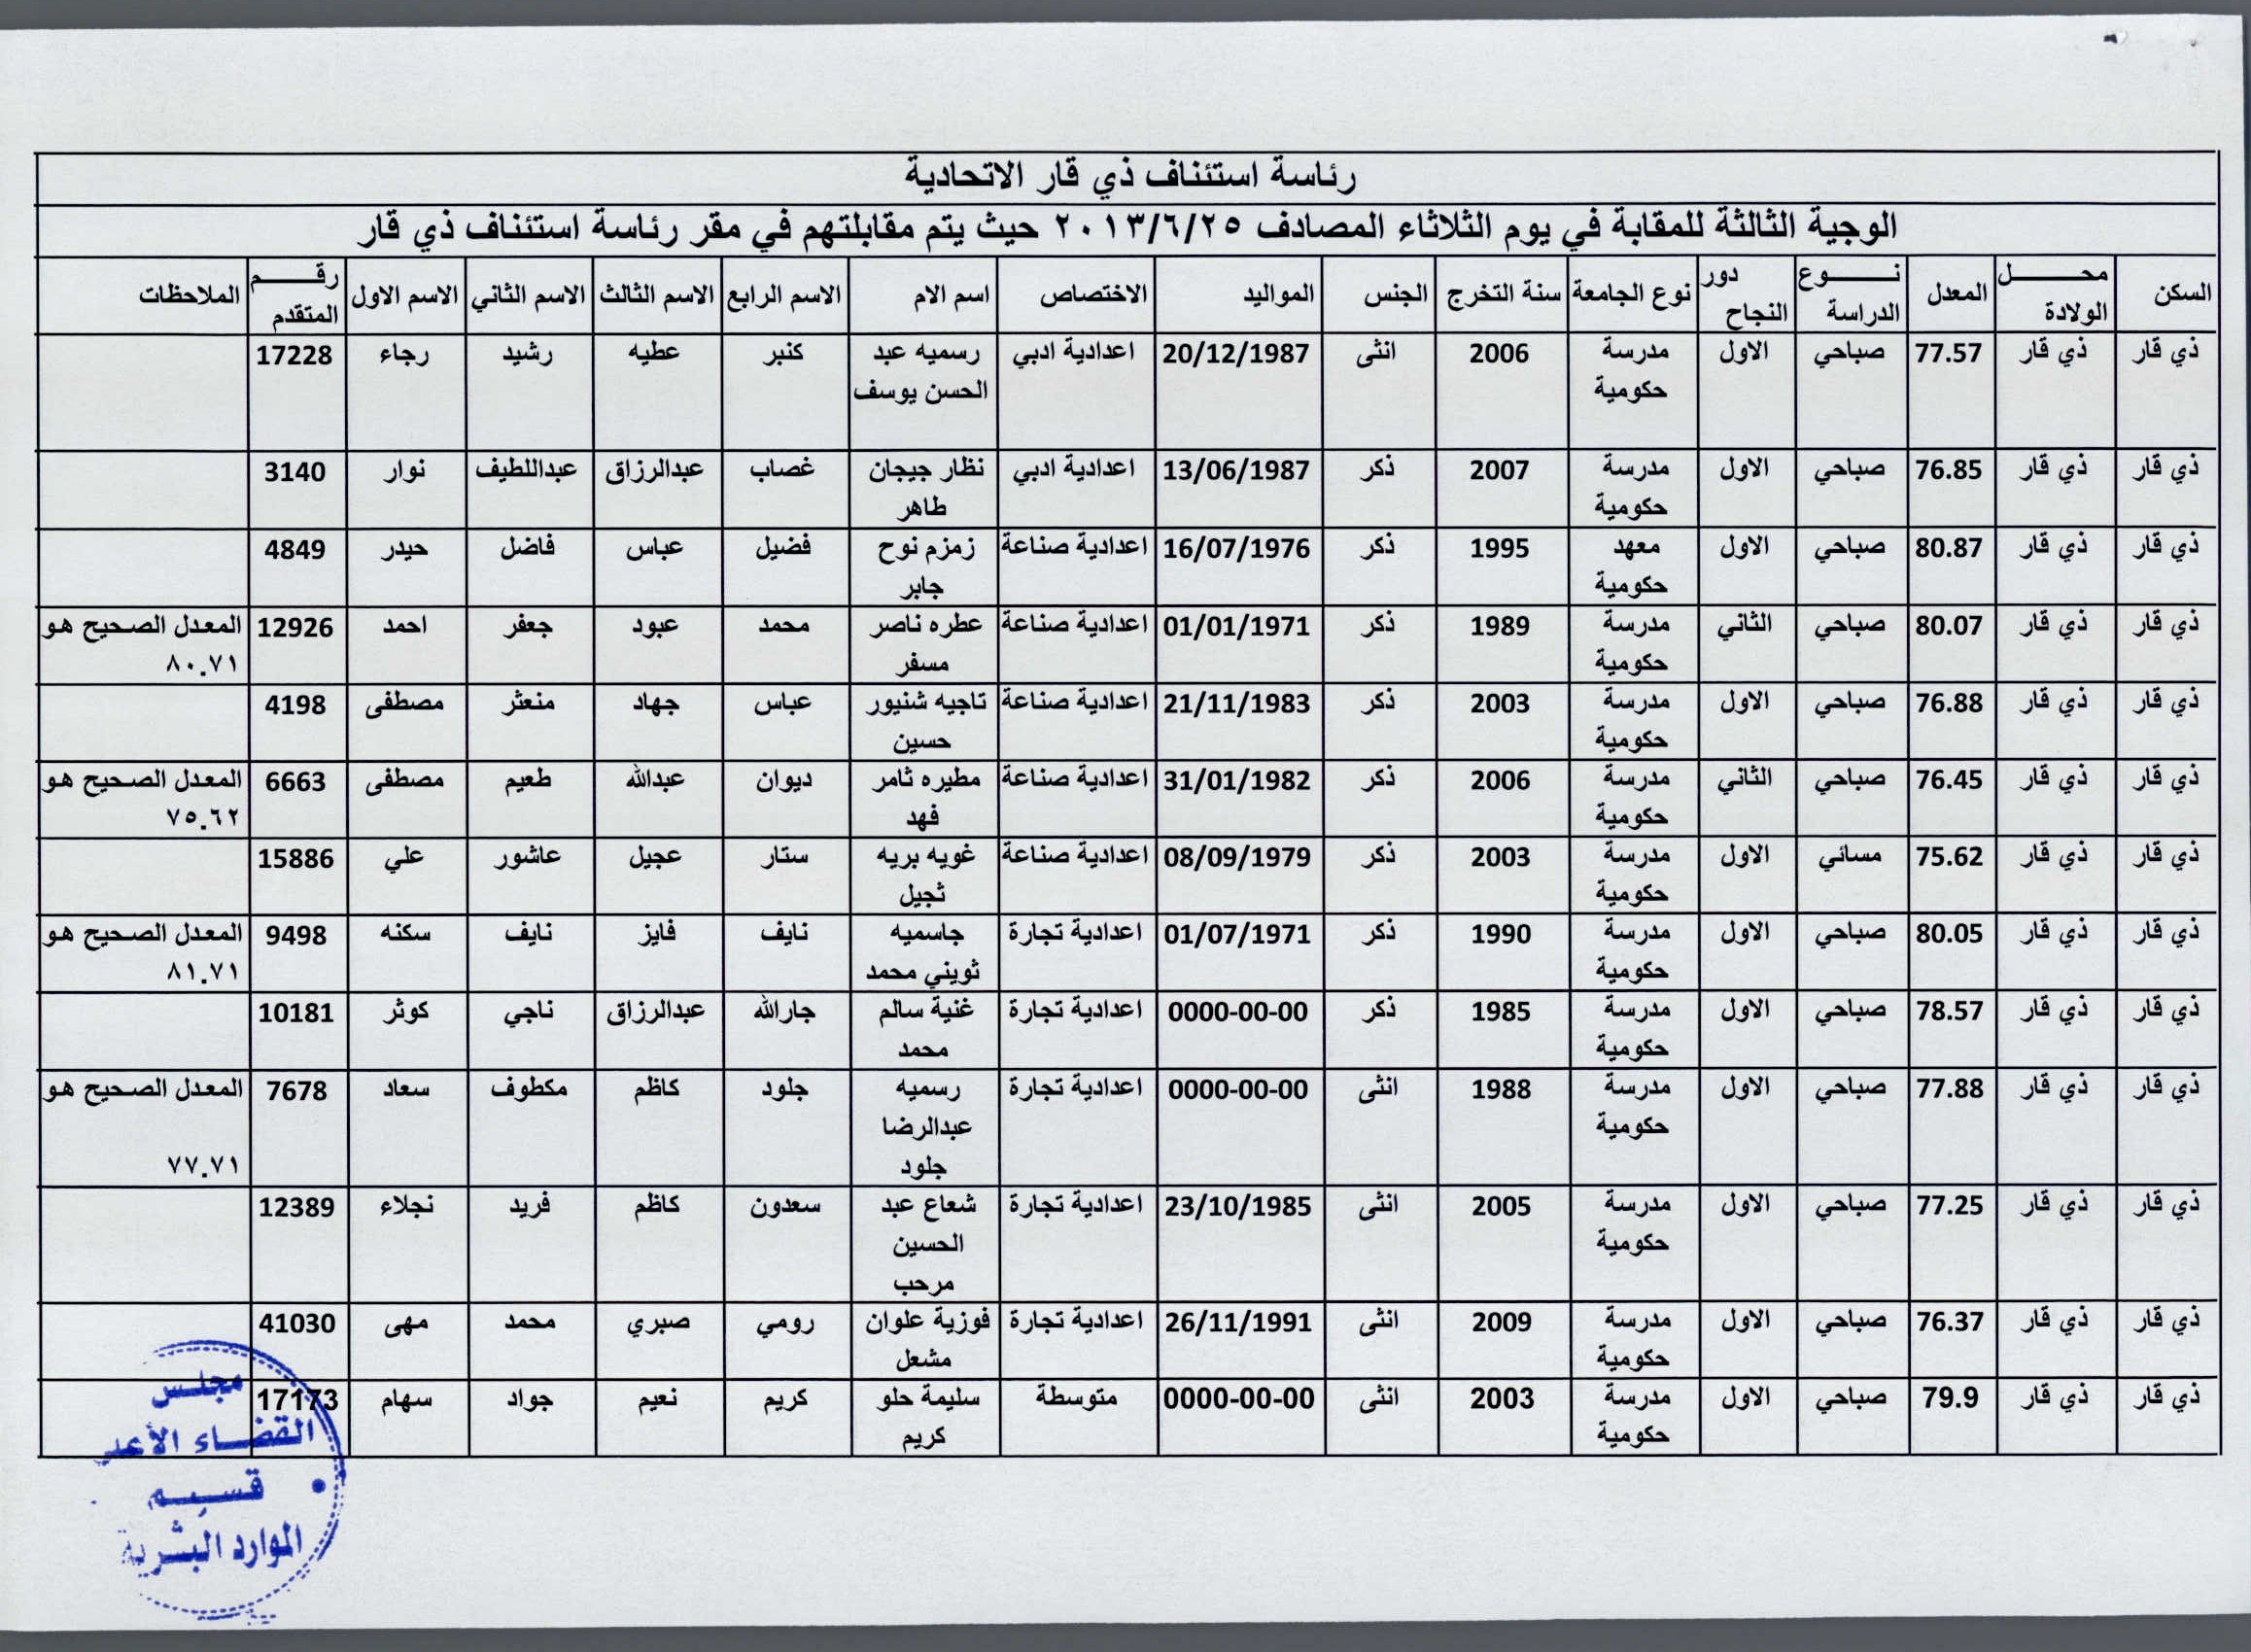 رئاسة استئناف ذي قار الاتحادية
الوجبة الثالثة للمقابة في يوم الثلاثاء المصادف ٢٠١٣/٦/٢٥ حيث يتم مقابلتهم في مقر رئاسة استئناف ذي قار
السكن محل الولادة المعدل نوع الدراسة دور النجاح نوع الجامعة سنة التخرج الجنس المواليد الاختصاص اسم الام الاسم الرابع الاسم الثالث الاسم الثاني الاسم الاول رقم المتقدم الملاحظات
ذي قار ذي قار 77.57 صباحي الاول مدرسة حكومية 2006 انثى 20/12/1987 اعدادية ادبي رسميه عبد الحسن يوسف كنبر عطيه رشيد رجاء 17228
ذي قار ذي قار 76.85 صباحي الاول مدرسة حكومية 2007 ذكر 13/06/1987 اعدادية ادبي نظار جيجان طاهر غصاب عبدالرزاق عبداللطيف نوار 3140
ذي قار ذي قار 80.87 صباحي الاول معهد حكومية 1995 ذكر 16/07/1976 اعدادية صناعة زمزم نوح جابر فضيل عباس فاضل حيدر 4849
ذي قار ذي قار 80.07 صباحي الثاني مدرسة حكومية 1989 ذكر 01/01/1971 اعدادية صناعة عطره ناصر مسفر محمد عبود جعفر احمد 12926 المعدل الصحيح هو ٨٠.٧١
ذي قار ذي قار 76.88 صباحي الاول مدرسة حكومية 2003 ذكر 21/11/1983 اعدادية صناعة تاجيه شنيور حسين عباس جهاد منعثر مصطفى 4198
ذي قار ذي قار 76.45 صباحي الثاني مدرسة حكومية 2006 ذكر 31/01/1982 اعدادية صناعة مطيره ثامر فهد ديوان عبدالله طعيم مصطفى 6663 المعدل الصحيح هو ٧٥.٦٢
ذي قار ذي قار 75.62 مسائي الاول مدرسة حكومية 2003 ذكر 08/09/1979 اعدادية صناعة غويه بريه ثجيل ستار عجيل عاشور علي 15886
ذي قار ذي قار 80.05 صباحي الاول مدرسة حكومية 1990 ذكر 01/07/1971 اعدادية تجارة جاسميه ثويني محمد نايف فايز نايف سكنه 9498 المعدل الصحيح هو ٨١.٧١
ذي قار ذي قار 78.57 صباحي الاول مدرسة حكومية 1985 ذكر 0000-00-00 اعدادية تجارة غنية سالم محمد جارالله عبدالرزاق ناجي كوثر 10181
ذي قار ذي قار 77.88 صباحي الاول مدرسة حكومية 1988 انثى 0000-00-00 اعدادية تجارة رسميه عبدالرضا جلود جلود كاظم مكطوف سعاد 7678 المعدل الصحيح هو ٧٧.٧١
ذي قار ذي قار 77.25 صباحي الاول مدرسة حكومية 2005 انثى 23/10/1985 اعدادية تجارة شعاع عبد الحسين مرحب سعدون كاظم فريد نجلاء 12389
ذي قار ذي قار 76.37 صباحي الاول مدرسة حكومية 2009 انثى 26/11/1991 اعدادية تجارة فوزية علوان مشعل رومي صبري محمد مهى 41030
ذي قار ذي قار 79.9 صباحي الاول مدرسة حكومية 2003 انثى 0000-00-00 متوسطة سليمة حلو كريم كريم نعيم جواد سهام 17173
مجلس
القضاء
قسم
الموارد البشرية